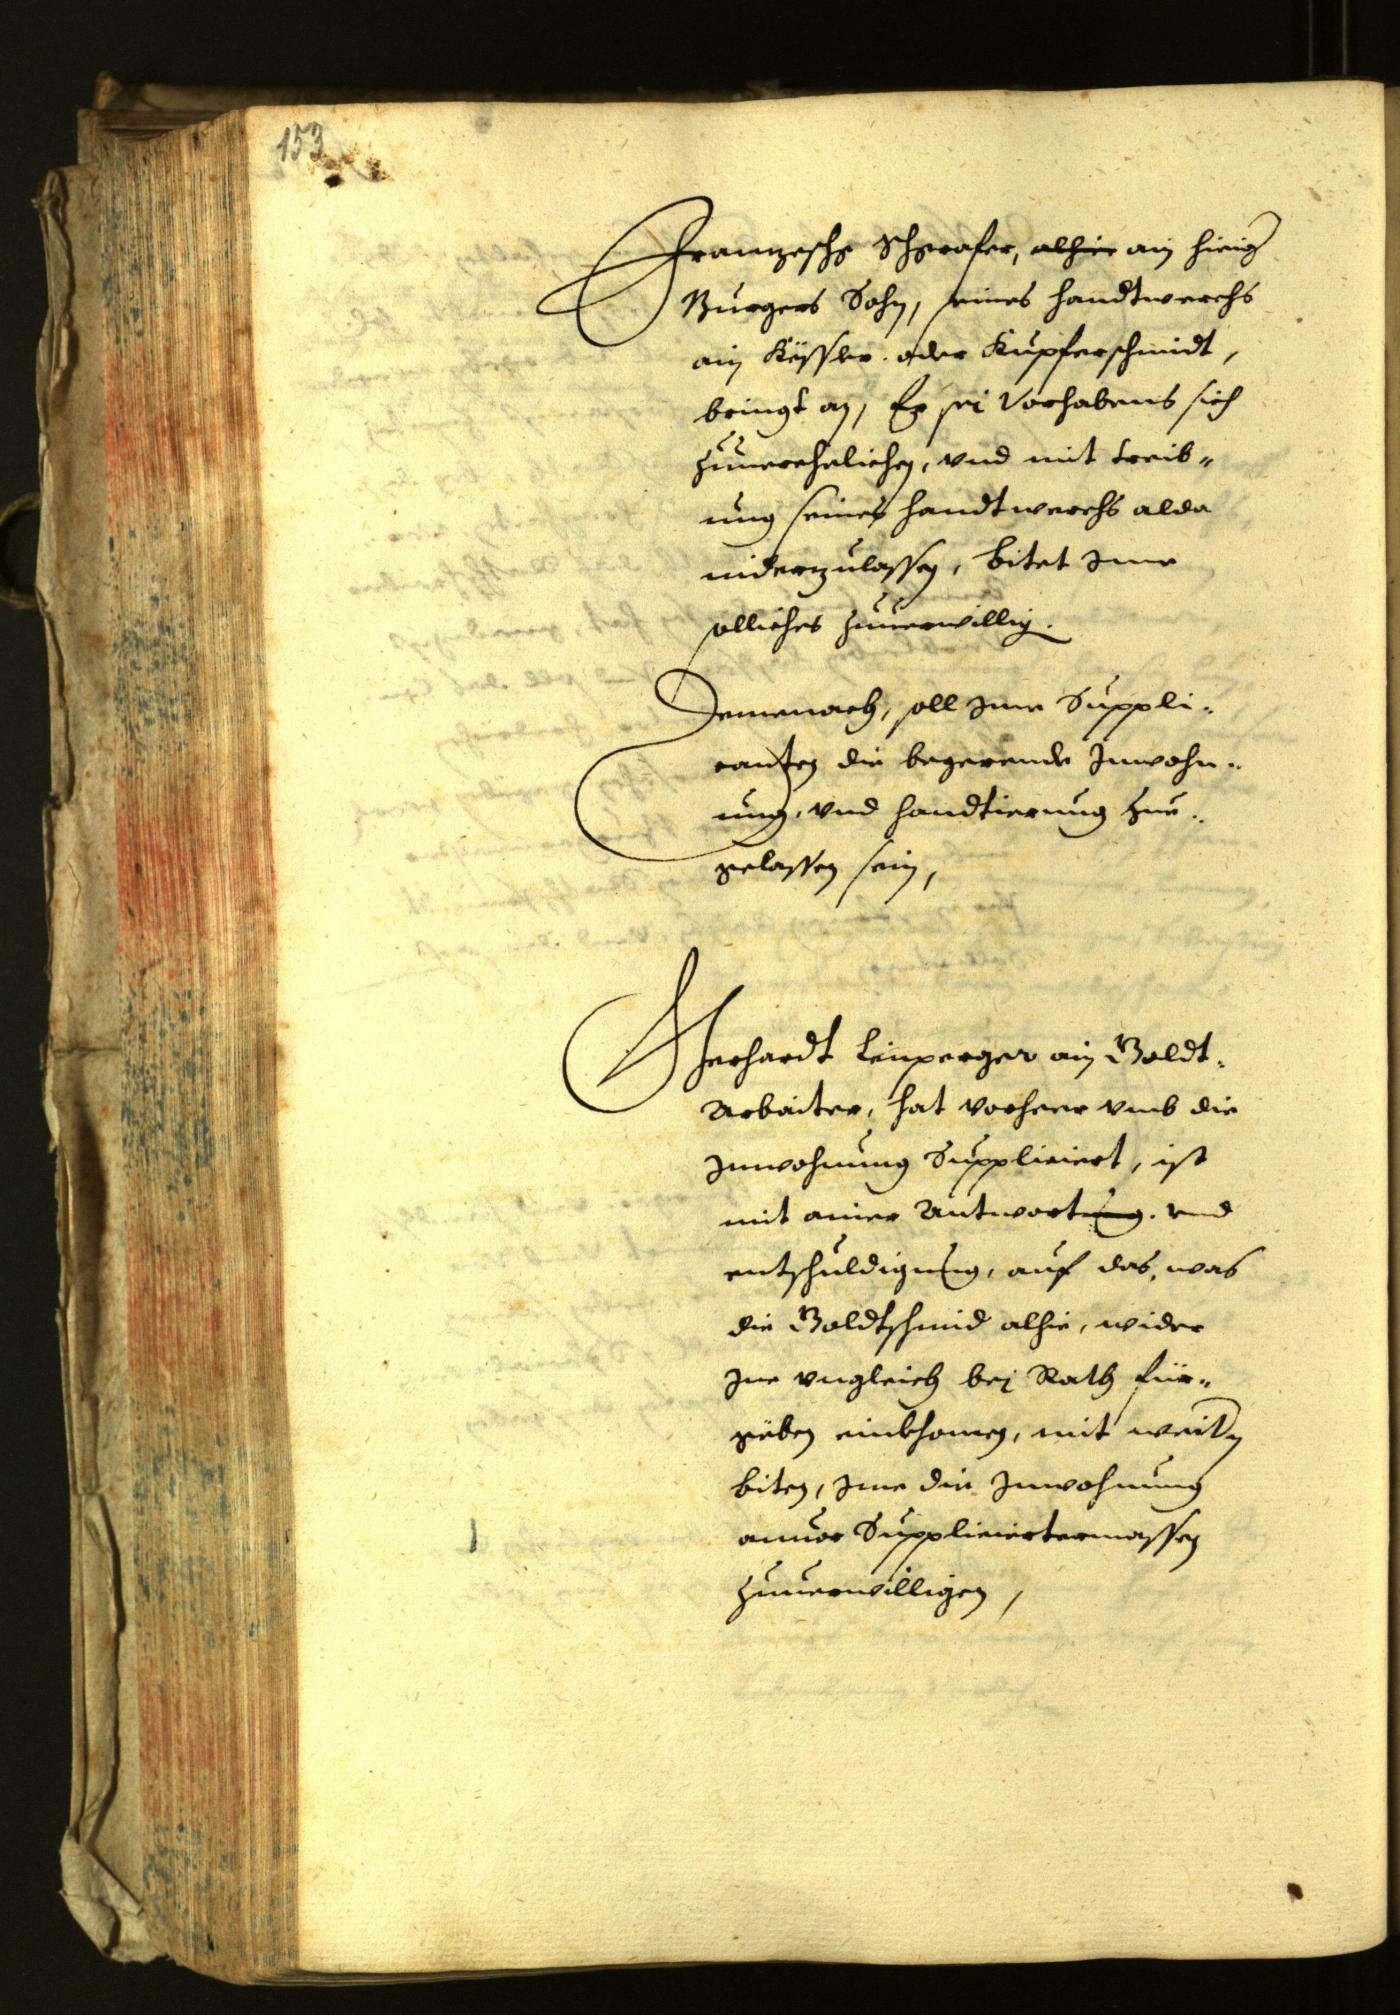 153
Franzeschg Schgrafer, alhier ain hieigs
Burgers Sohn, seines handtwerchs
ain Kessler oder Kupferschmidt,
bringt an, Er sei Vorhabens sich
zuuerehelichen, vnd mit treib„
ung seines handtwerchs alda
niderzulassen, bitet Ime
solliches zuuerwillig.
Demenach, soll Ime Suppli„
canten die begerende Inwohn„
ung, vnd handtierung zue„
gelassen sein,
Gerhardt ain Goldt„
Arbaiter, hat vorheer vmb die
Inwohnung Suppliciert, ist
mit ainer Antwortung. vnd
entschuldigung, auf das, was
die Goldtschmid alhie, wider
Ine vngleich bej Rath für„
geben einkhomen, mit weitn
biten, Ime die Inwohnung
anuor Suppliciertermassen
zuuerwilligen,